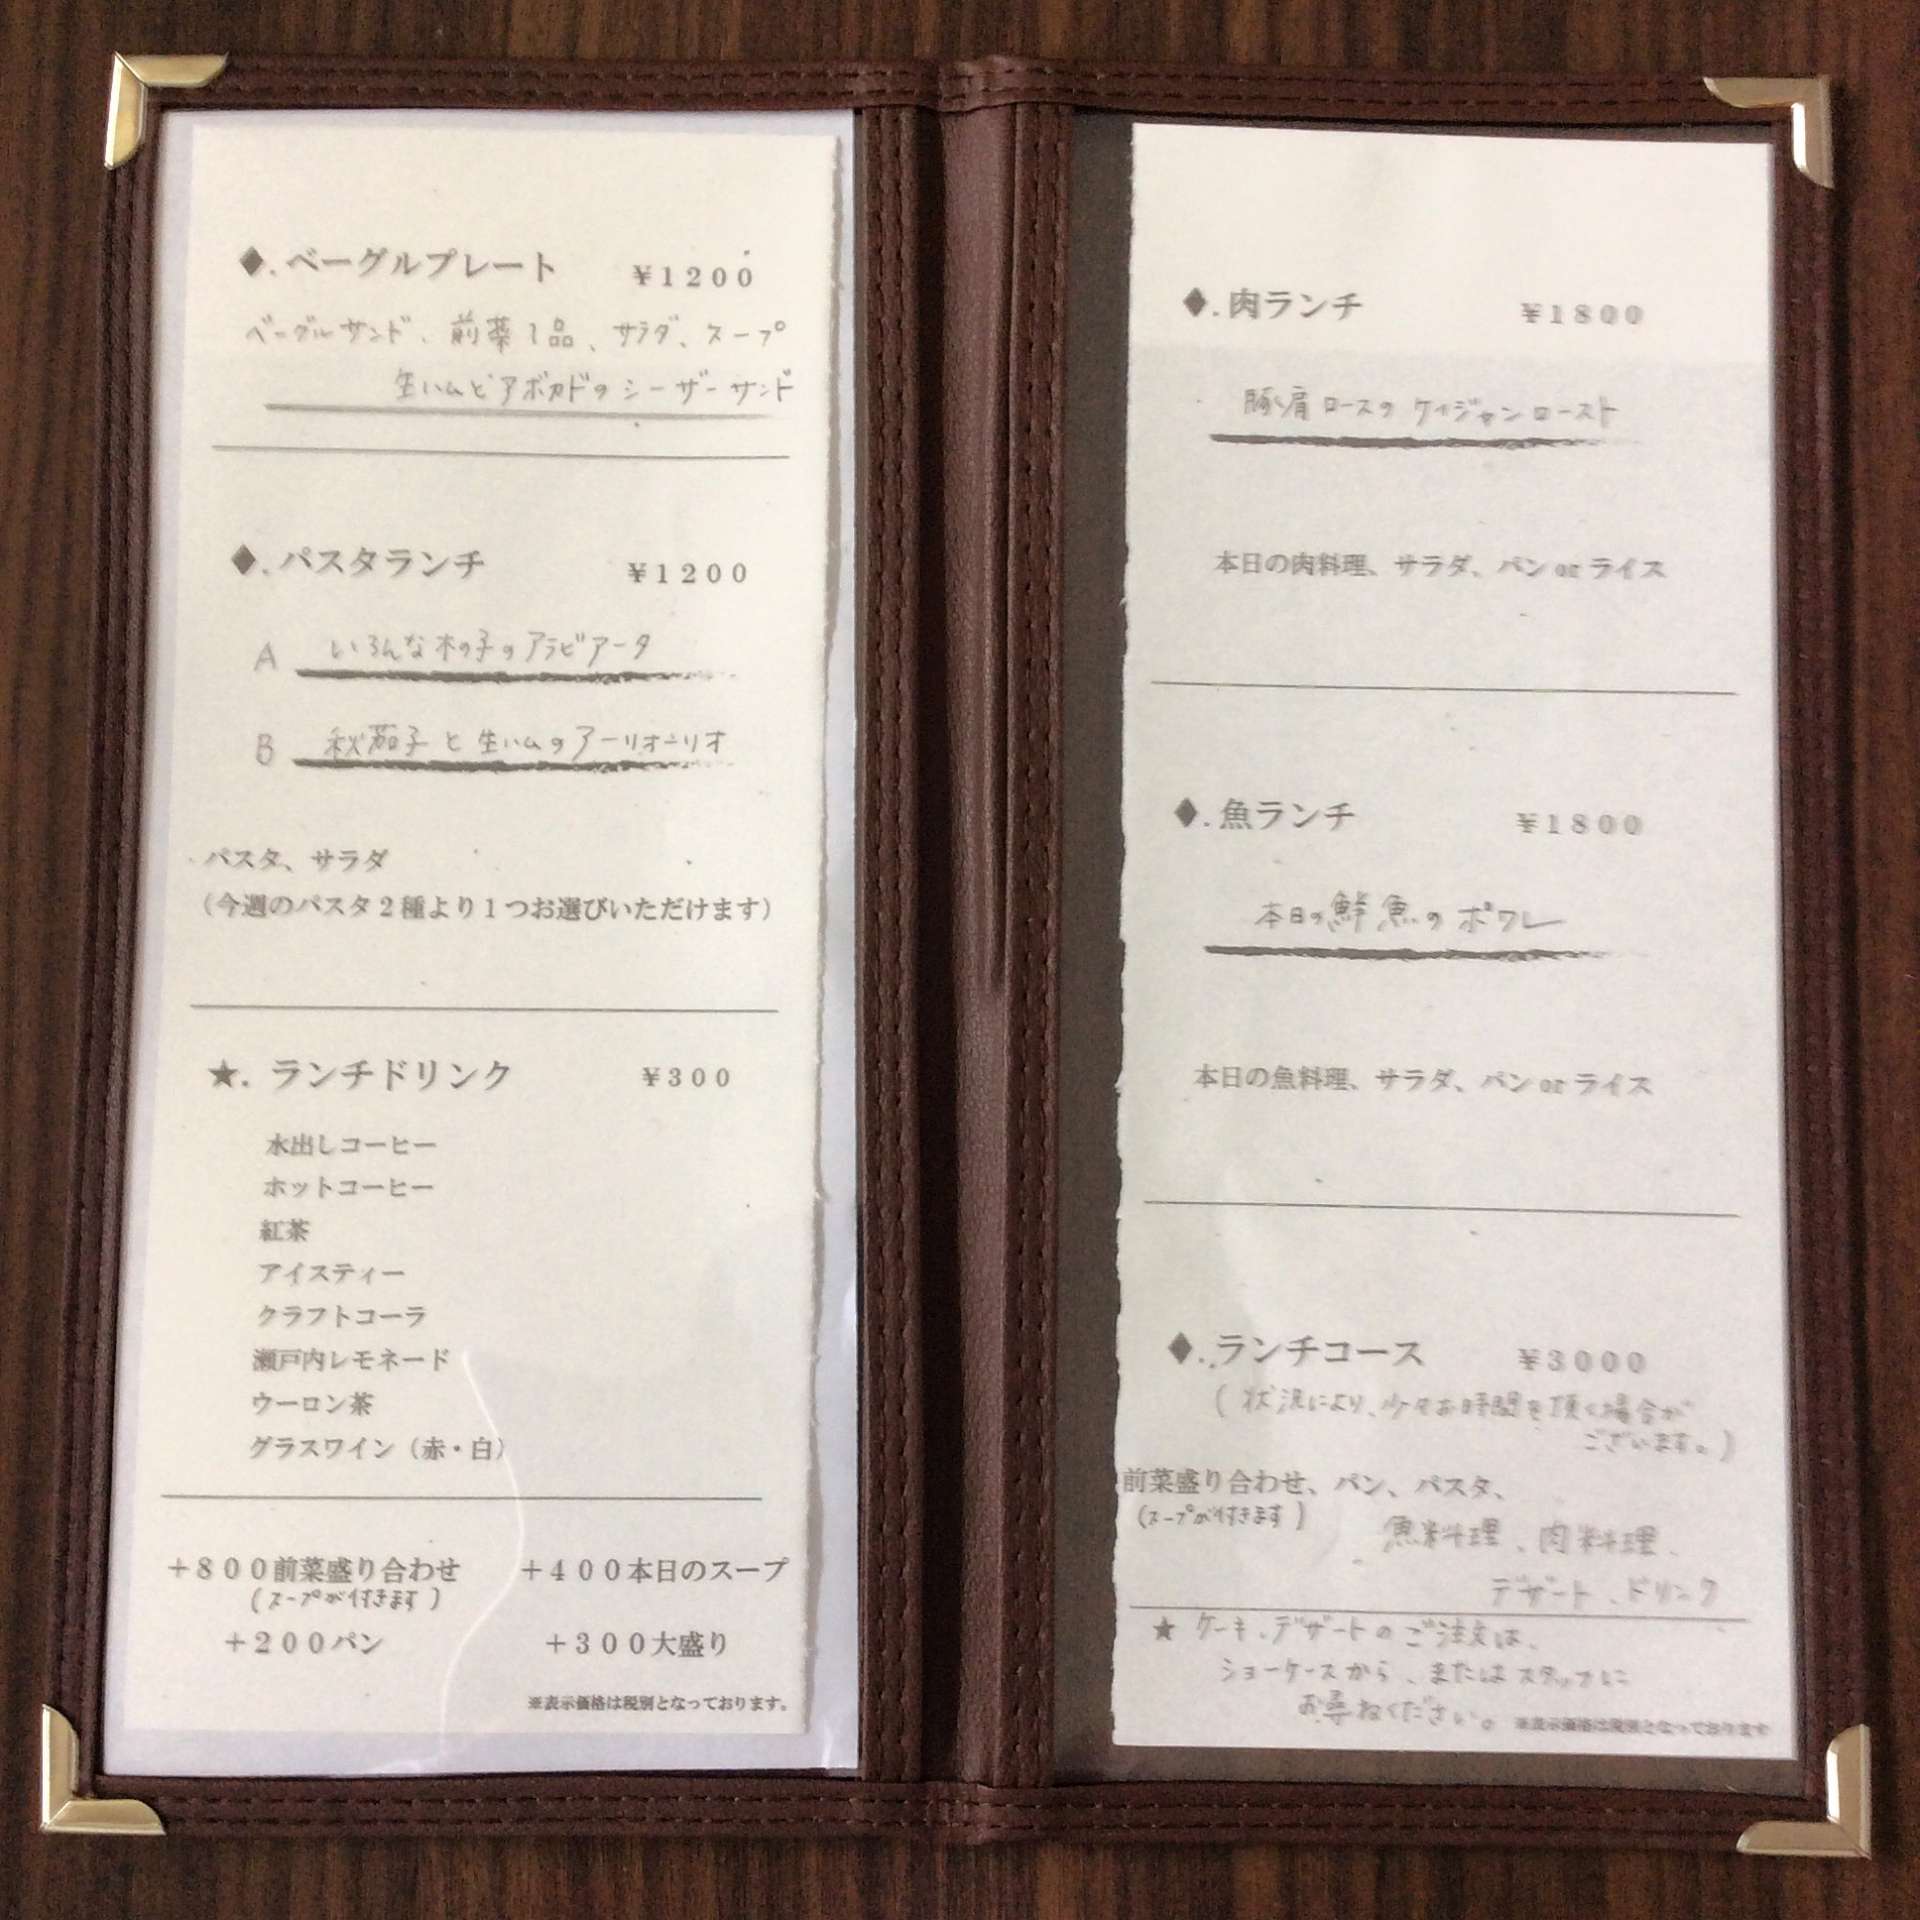 ◆. ベーグルプレート ¥1200
ベーグルサンド、前菜1品、サラダ、スープ
生ハムとアボカドのシーザーサンド
◆. パスタランチ ¥1200
A いろんな木の子のアラビアータ
B 秋茄子と生ハムのアーリオーリオ
パスタ、サラダ
（今週のパスタ２種より１つお選びいただけます）
★. ランチドリンク ¥300
水出しコーヒー
ホットコーヒー
紅茶
アイスティー
クラフトコーラ
瀬戸内レモネード
ウーロン茶
グラスワイン（赤・白）
＋８００前菜盛り合わせ ＋４００本日のスープ
(スープが付きます)
＋２００パン ＋３００大盛り
※表示価格は税別となっております。
◆. 肉ランチ ¥1800
豚肩ロースのケイジャンロースト
本日の肉料理、サラダ、パン or ライス
◆. 魚ランチ ¥1800
本日の鮮魚のポワレ
本日の魚料理、サラダ、パン or ライス
◆. ランチコース ¥3000
(状況により、少々お時間を頂く場合が
ございます。)
前菜盛り合わせ、パン、パスタ、
(スープが付きます)
魚料理、肉料理、
デザート、ドリンク
★ ケーキ、デザートのご注文は、
ショーケースから、またはスタッフに
お尋ねください。 ※表示価格は税別となっております